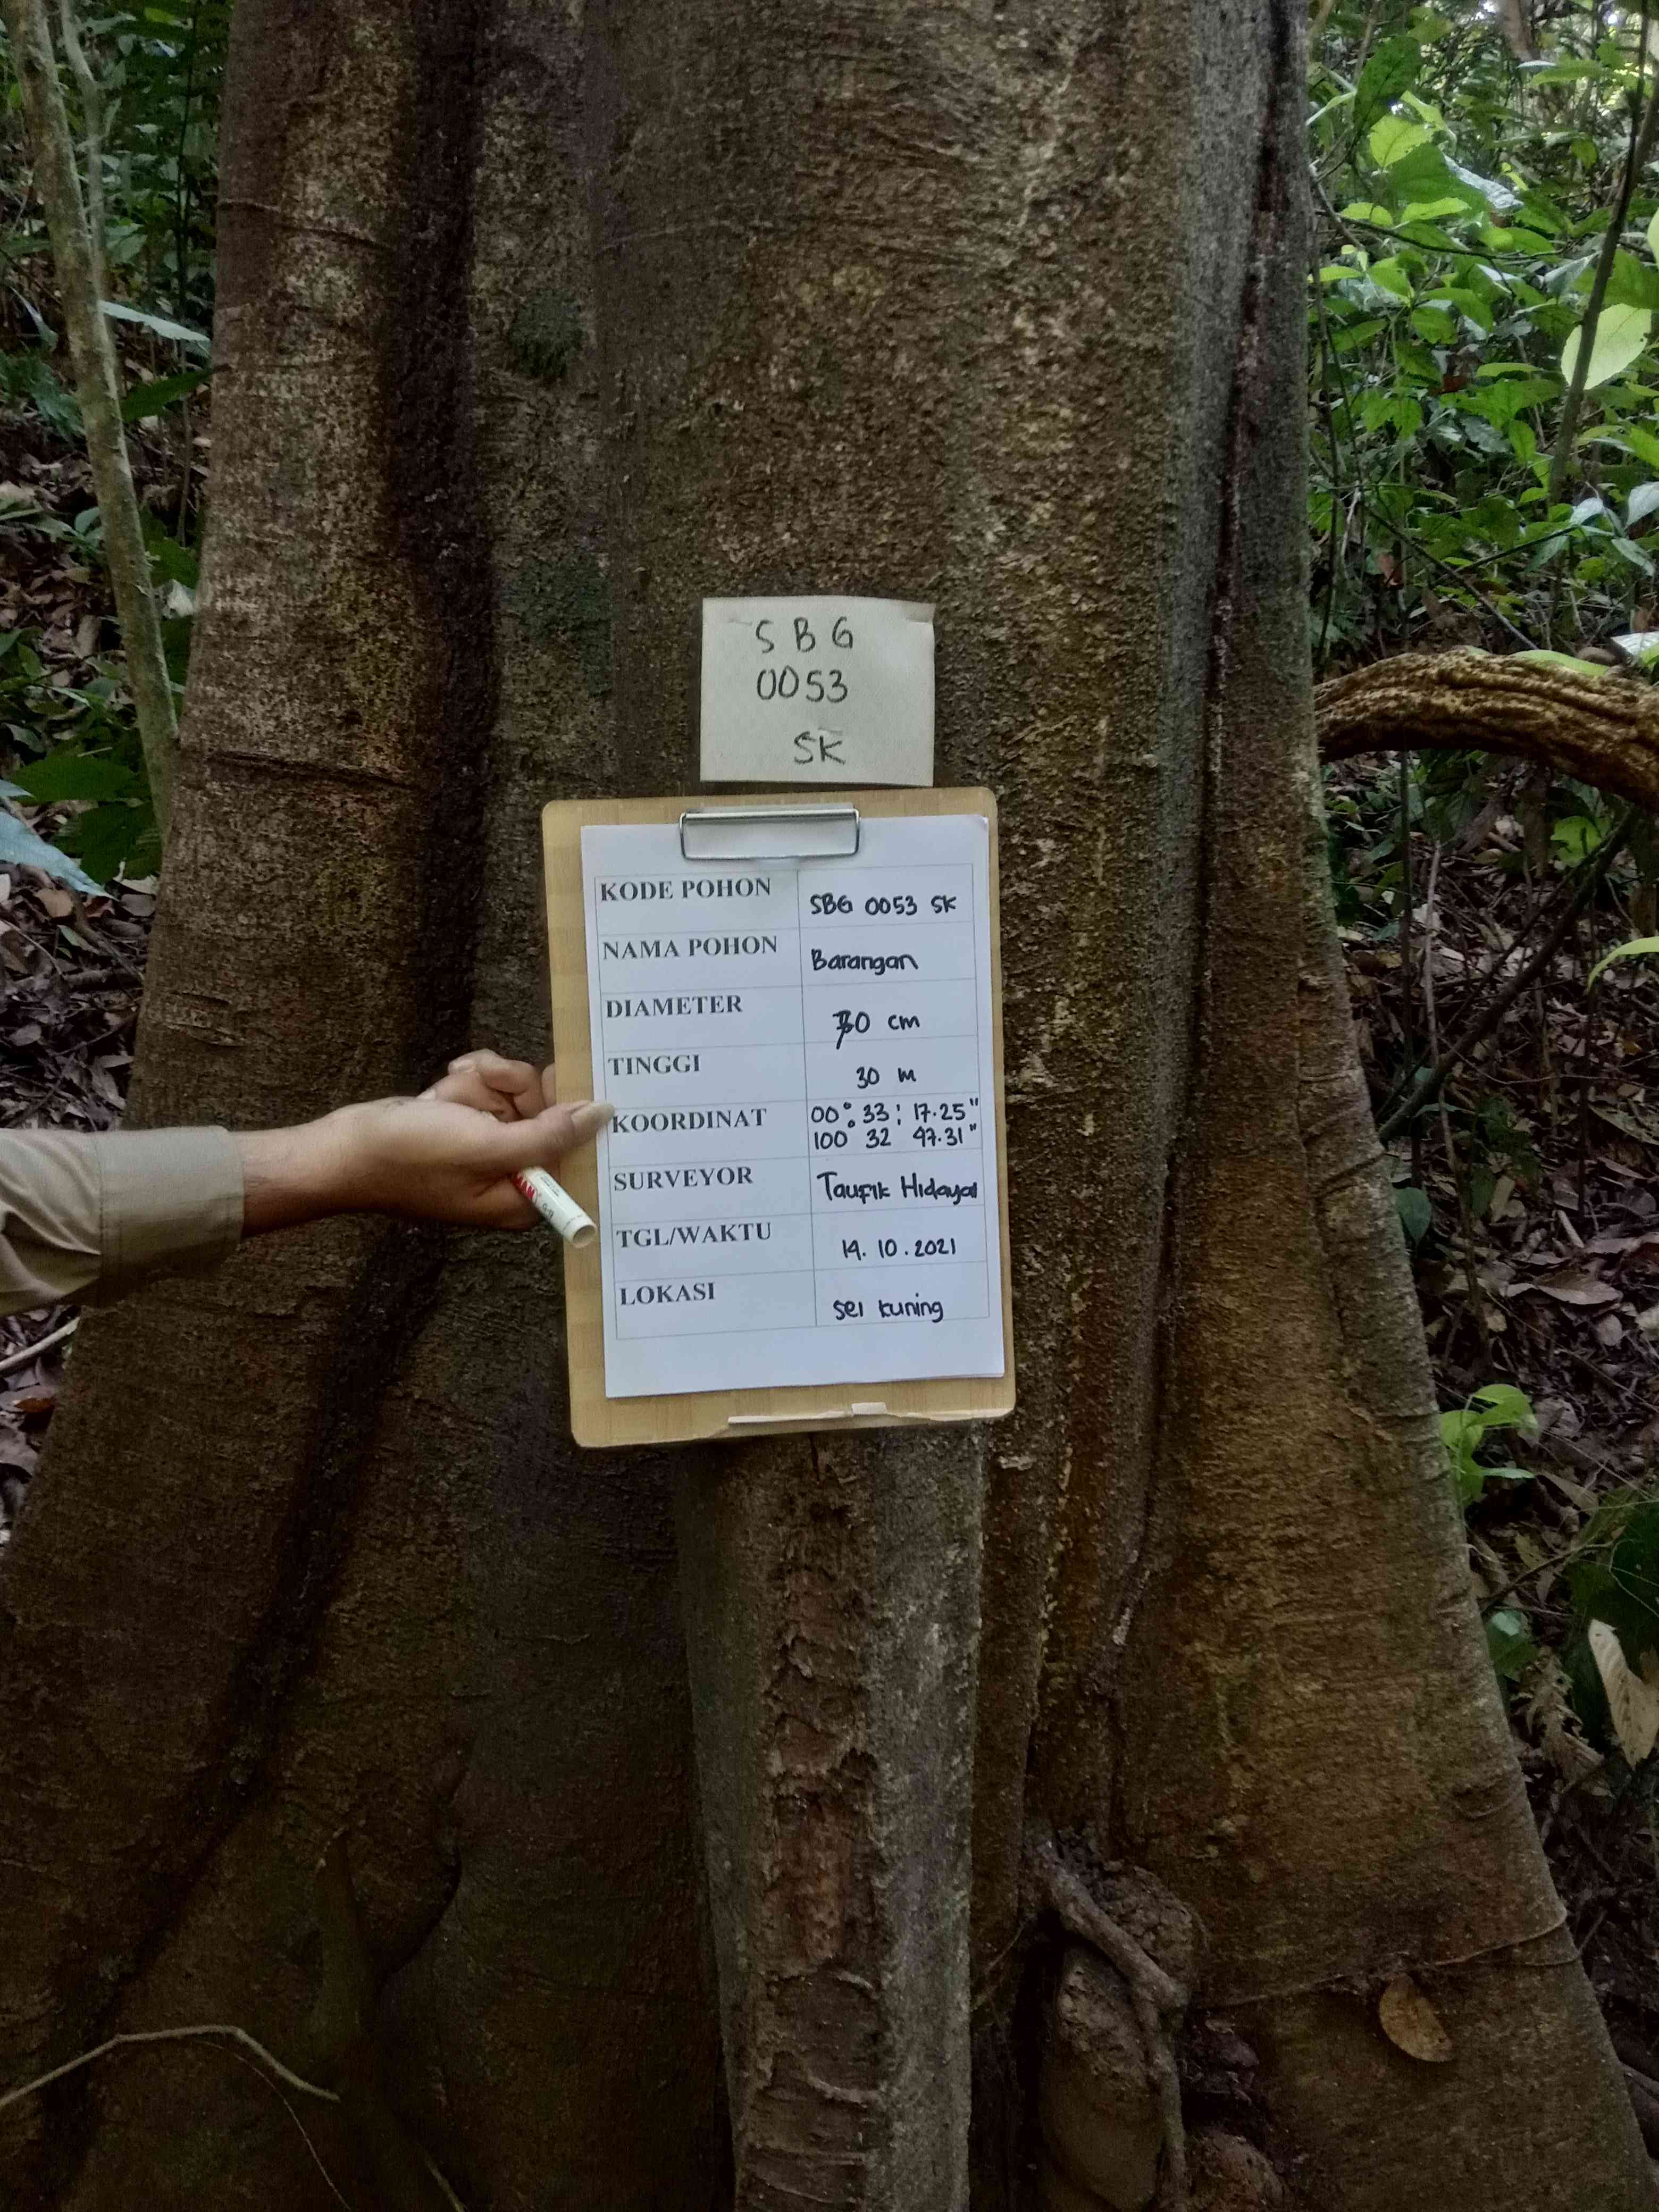 S B G
0053
SK
KODE POHON SBG 0053 SK
NAMA POHON Barangan
DIAMETER 70 cm
TINGGI 30 m
KOORDINAT 00° 33' 17.25"
100° 32 47.31"
SURVEYOR Taufik Hidayat
TGL/WAKTU 14.10.2021
LOKASI Sei kuning